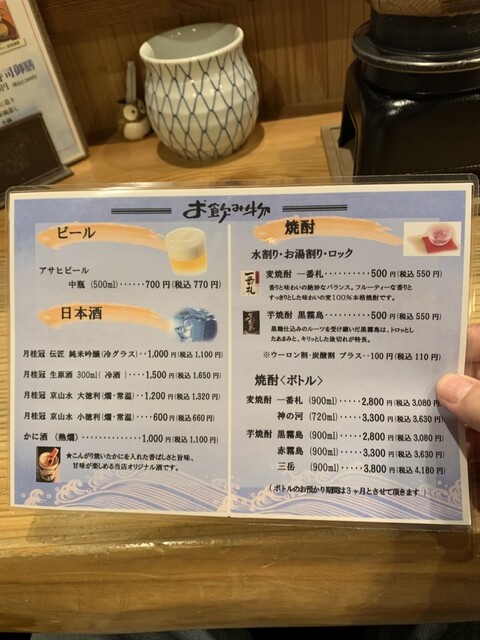 司御膳
お飲み物
ビール
アサヒビール
中瓶 (500ml)‥‥‥700円(税込 770円)
日本酒
月桂冠 伝匠 純米吟醸(冷グラス)‥1,000円(税込1,100円)
月桂冠 生原酒 300ml( 冷酒 )‥‥1,500円(税込1,650円)
月桂冠 京山水 大徳利(燗・常温)‥‥1,200円(税込1,320円)
月桂冠 京山水 小徳利(燗・常温)‥‥600円(税込660円)
かに酒 (熱燗)‥‥‥‥‥‥‥1,000円(税込1,100円)
★こんがり焼いたかにを入れた香ばしさと旨味、
甘味が楽しめる当店オリジナル酒です。
焼酎
水割り・お湯割り・ロック
一番札
麦焼酎 一番札‥‥‥‥‥500円(税込 550円)
香りと味わいの絶妙なバランス。フルーティーな香りと
すっきりとした味わいの麦100%本格焼酎です。
芋焼酎 黒霧島‥‥‥‥‥500円(税込 550円)
黒麹仕込みのルーツを受け継いだ黒霧島は、トロッとし
たあまみと、キリッとした後切れが特長。
※ウーロン割・炭酸割 プラス‥100円(税込 110円)
焼酎〈ボトル〉
麦焼酎 一番札 (900ml)‥‥2,800円(税込 3,080円)
神の河 (720ml)‥‥3,300円(税込 3,630円)
芋焼酎 黒霧島 (900ml)‥‥2,800円(税込 3,080円)
赤霧島 (900ml)‥‥3,300円(税込 3,630円)
三岳 (900ml)‥‥3,800円(税込 4,180円)
(ボトルのお預かり期間は3ヶ月とさせて頂きます )